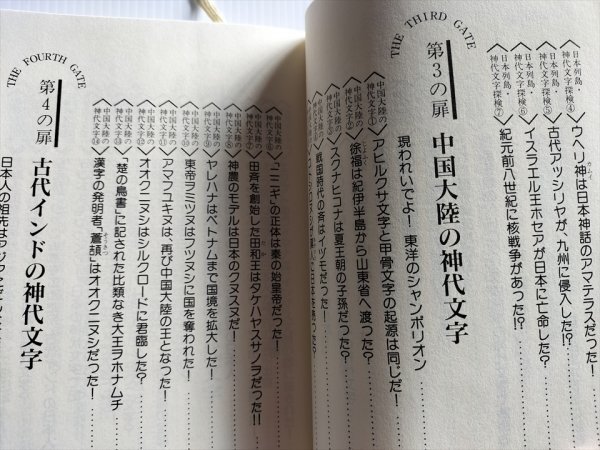 日本列島・神代文字探検④ ウヘリ神は日本神話のアマテラスだった!
日本列島・神代文字探検⑤ 古代アッシリヤが、九州に侵入した!?
日本列島・神代文字探検⑥ イスラエル王ホセアが日本に亡命した?
日本列島・神代文字探検⑦ 紀元前八世紀に核戦争があった?!
THE THIRD GATE
第3の扉 中国大陸の神代文字
現われいでよ! 東洋のシャンポリオン
中国大陸の神代文字① アヒルクサ文字と甲骨文字の起源は同じだ!
中国大陸の神代文字② 徐福は紀伊半島から山東省へ渡った?
じょふく
中国大陸の神代文字③ スクナヒコナは夏王朝の子孫だった!
戦国時代の斉はイヅモだった!
中国大陸の神代文字⑥ 「ニニギ」の正体は秦の始皇帝だった!
中国大陸の神代文字⑦ 田斉を創始した田和王はタケハヤスサノヲだった!!
中国大陸の神代文字⑧ 神農のモデルは日本のウヌスヌだ!
中国大陸の神代文字⑨ ヤレハナはベトナムまで国境を拡大した!
中国大陸の神代文字⑩ 東帝ヲミヅヌはフツヌシに国を奪われた!
中国大陸の神代文字⑪ アマフユキヌは、再び中国大陸の王となった!
中国大陸の神代文字⑫ オオクニヌシはシルクロードに君臨した?
中国大陸の神代文字⑬ 「楚の鳥書」に記された比類なき大王ヲホナムチ
中国大陸の神代文字⑭ 漢字の発明者“蒼頡”はオオクニヌシだった!
そうきつ
THE FOURTH GATE
第4の扉 古代インドの神代文字